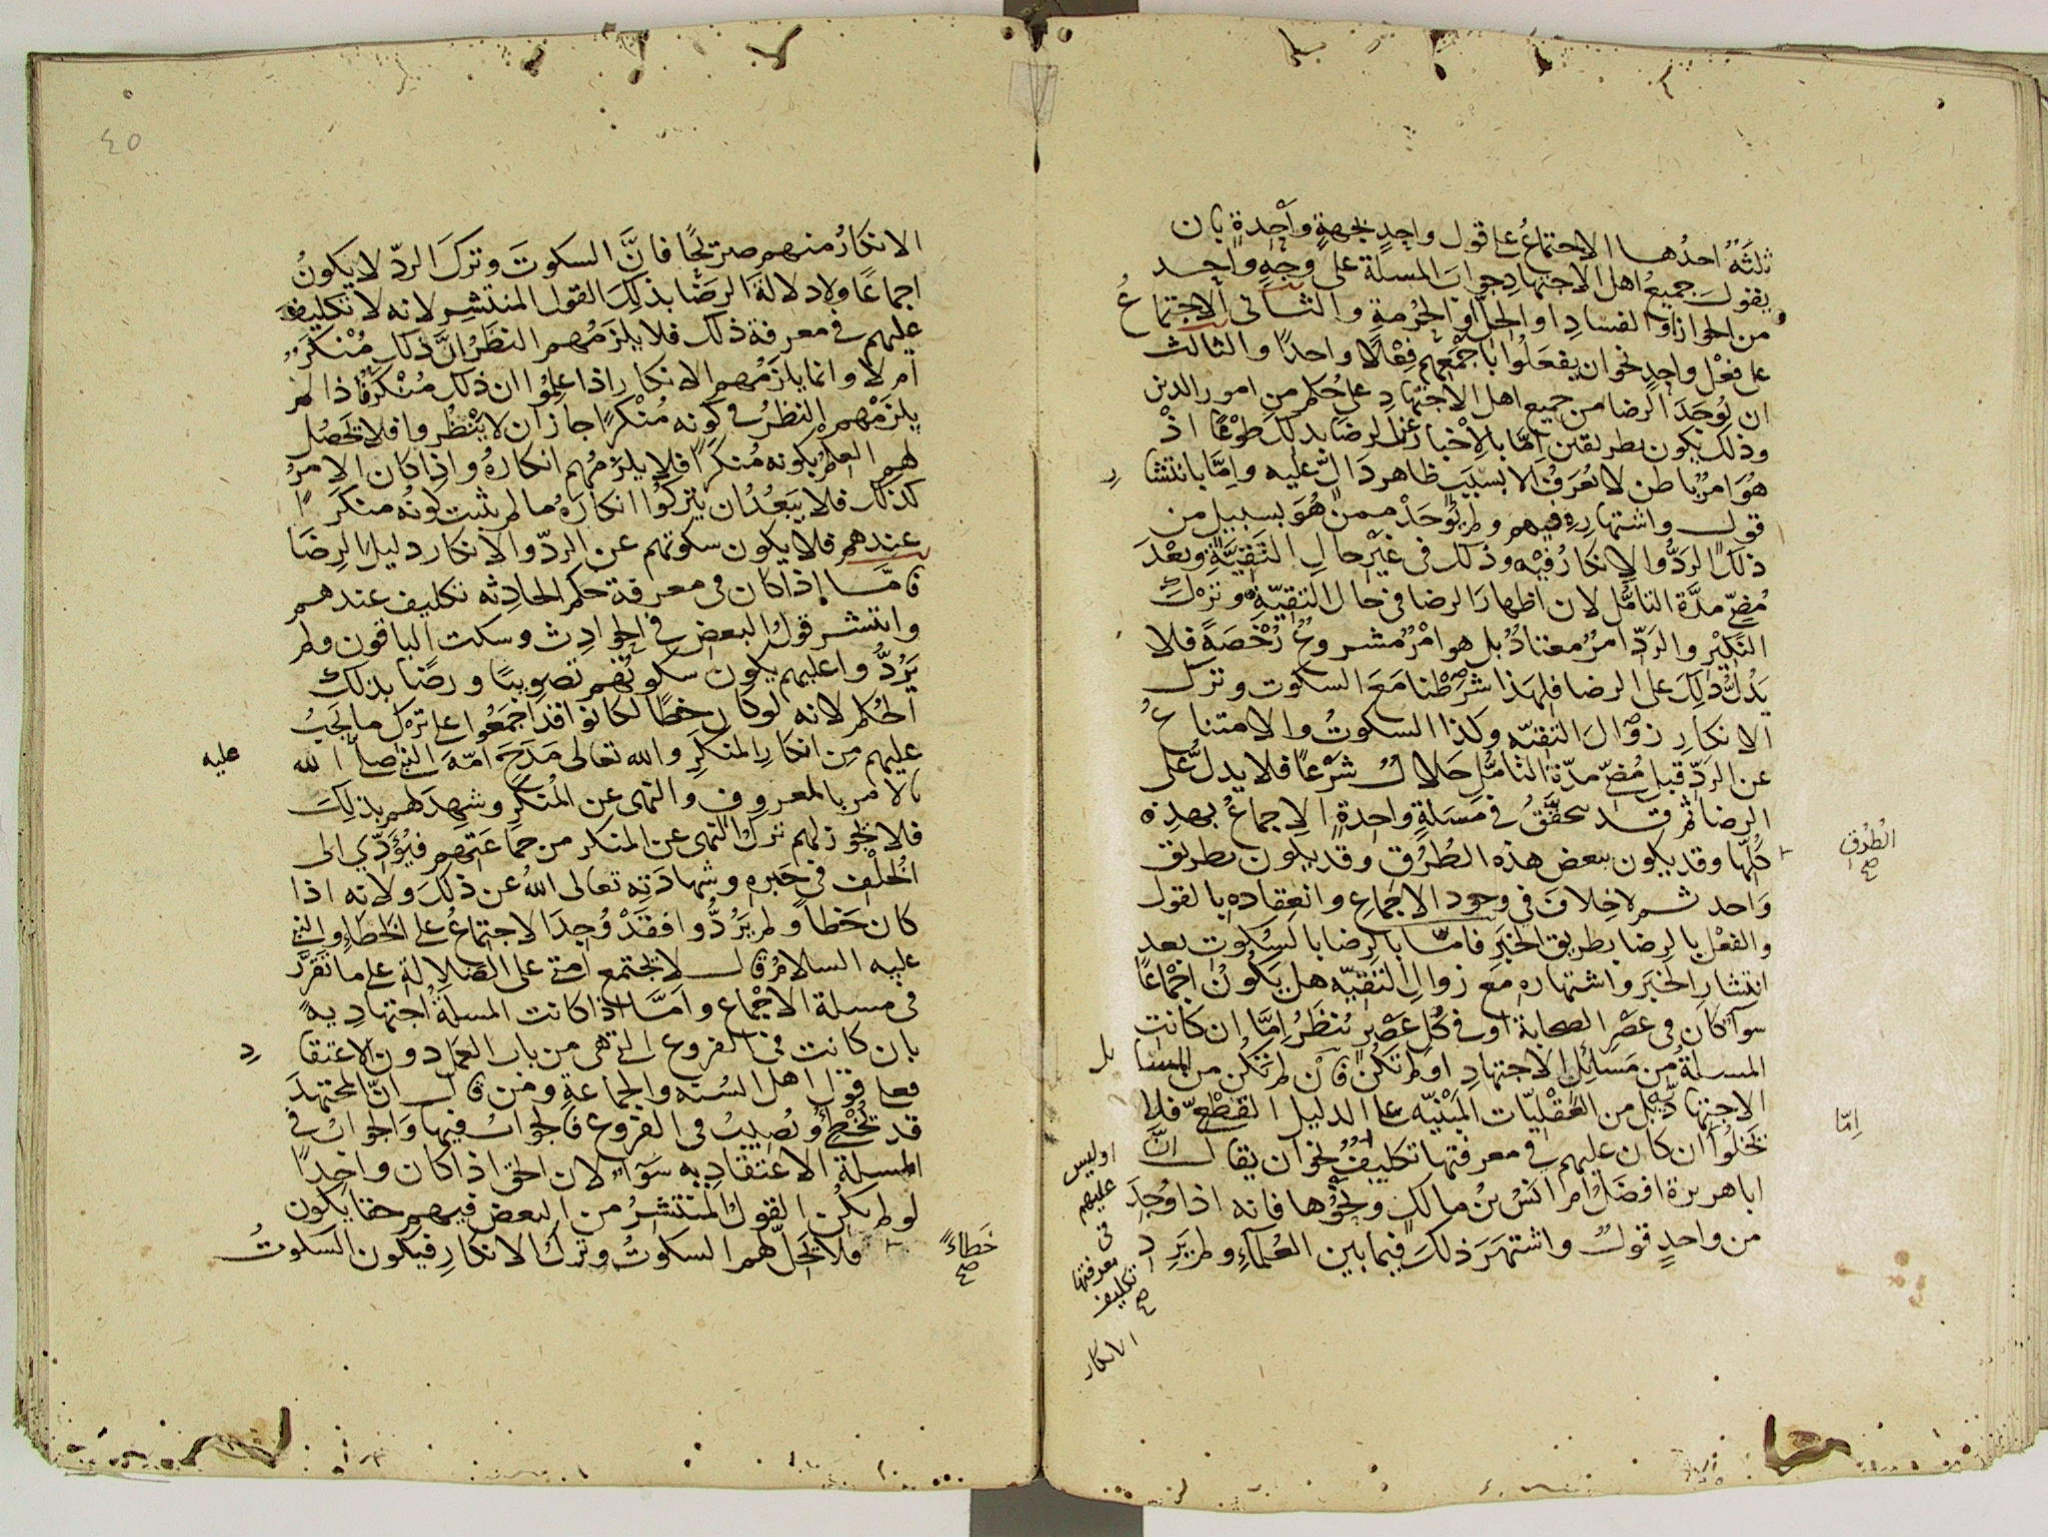 ثلثة احدها الاجتماع على قول واحد بجهة واحدة بان
يقول جميع اهل الاجتهاد جواب المسلة على وجه واحد
من الجواز او الفساد او الحل او الحرمة والثانى الاجتماع
على فعل واحد نحو ان يفعلوا باجمعهم فعلا واحدا والثالث
ان يوجد الرضا من جميع اهل الاجتهاد على حكم من امور الدين
وذلك يكون بطريقين اما بالاخبار عن الرضا بذلك طوعا اذ
هو امر باطن لا يعرف الا بسبب ظاهر دال عليه واما بانتشار
قول واشتهاره فيهم ولم يوجد ممن هو بسبيل من
ذلك الرد والانكار فيه وذلك فى غير حال التقية وبعد
مضى مدة التامل لان اظهار الرضا فى حال التقية وترك
النكير والرد امر معتاد بل هو امر مشروع رخصة فلا
يدل ذلك على الرضا فلهذا شرطنا مع السكوت وترك
الانكار زوال التقيه وكذا السكوت والامتناع
عن الرد قبل مضى مدة التامل حلال شرعا فلا يدل على
الرضا ثم قد يتحقق فى مسلة واحدة الاجماع بهذه
الطرق صح
كلها وقد يكون ببعض هذه الطرق وقد يكون بطريق
واحد ثم لا خلاف فى وجود الاجماع وانعقاده بالقول
والفعل بالرضا بطريق الخبر فاما بالرضا بالسكوت بعد
انتشار الخبر واشتهاره مع زوال التقيه هل يكون اجماعا
سوآ كان فى عصر الصحابة او فى كل عصر ينظر اما ان كانت
المسلة من مسائل الاجتهاد او لم تكن فان لم تكن من المسايل
الاجتهادية بل من العقليات المبنيه على الدليل القطعى فلا
يخلوا ان كان عليهم فى معرفتها تكليف نحو ان يقال ان
اما
او ليس
عليهم
فى
معرفتها
تكليف
صح
ابا هريرة افضل ام انس بن مالك ونحوها فانه اذا وجد
من واحد قول واشتهر ذلك فيما بين العلمآء ولم يرد
الانكار
٤٥
الانكار منهم صريحا فان السكوت وترك الرد لا يكون
اجماعا ولا دلالة الرضا بذلك القول المنتشر لانه لا تكليف
عليهم فى معرفة ذلك فلا يلزمهم النظر ان ذلك منكر
ام لا وانما يلزمهم الانكار اذا علموا ان ذلك منكر فاذا لم
يلزمهم النظر فى كونه منكرا جاز ان لا ينظروا فلا يحصل
لهم العلم بكونه منكرا فلا يلزمهم انكاره واذا كان الامر
كذلك فلا يبعد ان يتركوا انكاره ما لم يثبت كونه منكرا
عندهم فلا يكون سكوتهم عن الرد والانكار دليل الرضا
فامـا إذا كان فى معرفة حكم الحادثه تكليف عندهم
وانتشر قول البعض فى الحوادث وسكت الباقون ولم
يردوا عليهم يكون سكوتهم تصويبا ورضا بذلك
الحكم لانه لو كان خطا لكانوا قد اجمعوا على ترك ما يجب
عليهم من انكار المنكر والله تعالى مدح امة النبى صلى الله
عليه
بالامر بالمعروف والنهى عن المنكر وشهد لهم بذلك
فلا يجوز لهم ترك النهى عن المنكر من جماعتهم فيؤدى الى
الخلف فى خبره وشهادته تعالى الله عن ذلك ولانه اذا
كان خطا ولم يردوا فقد وجد الاجتماع على الخطاء والنبى
عليه السلام قال لا يجتمع امتى على الضلالة على ما تقرر
فى مسلة الاجماع واما اذا كانت المسلة اجتهادية
بان كانت فى الفروع التى هى من باب العمل دون الاعتقاد
فعلى قول اهل السنه والجماعة ومن قال ان المجتهد
قد يخطئ ويصيب فى الفروع فالجواب فيها والجواب فى
المسلة الاعتقاديه سوآء لان الحق اذا كان واحدا
لو لم يكن القول المنتشر من البعض فيهم حقا يكون
خطاء صح
فلا يحل لهم السكوت وترك الانكار فيكون السكوت